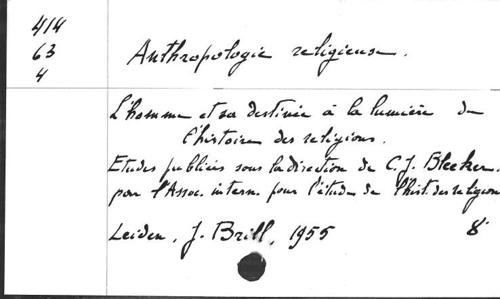 414
63
4
Anthropologie religieuse.
L'homme et sa destinée à la lumière de
l'histoire des religions.
Etudes publiées sous la direction de C.J. Bleeker.
par l'Assoc. intern. pour l'étude de l'hist. des religions
Leiden, J. Brill, 1955 8°